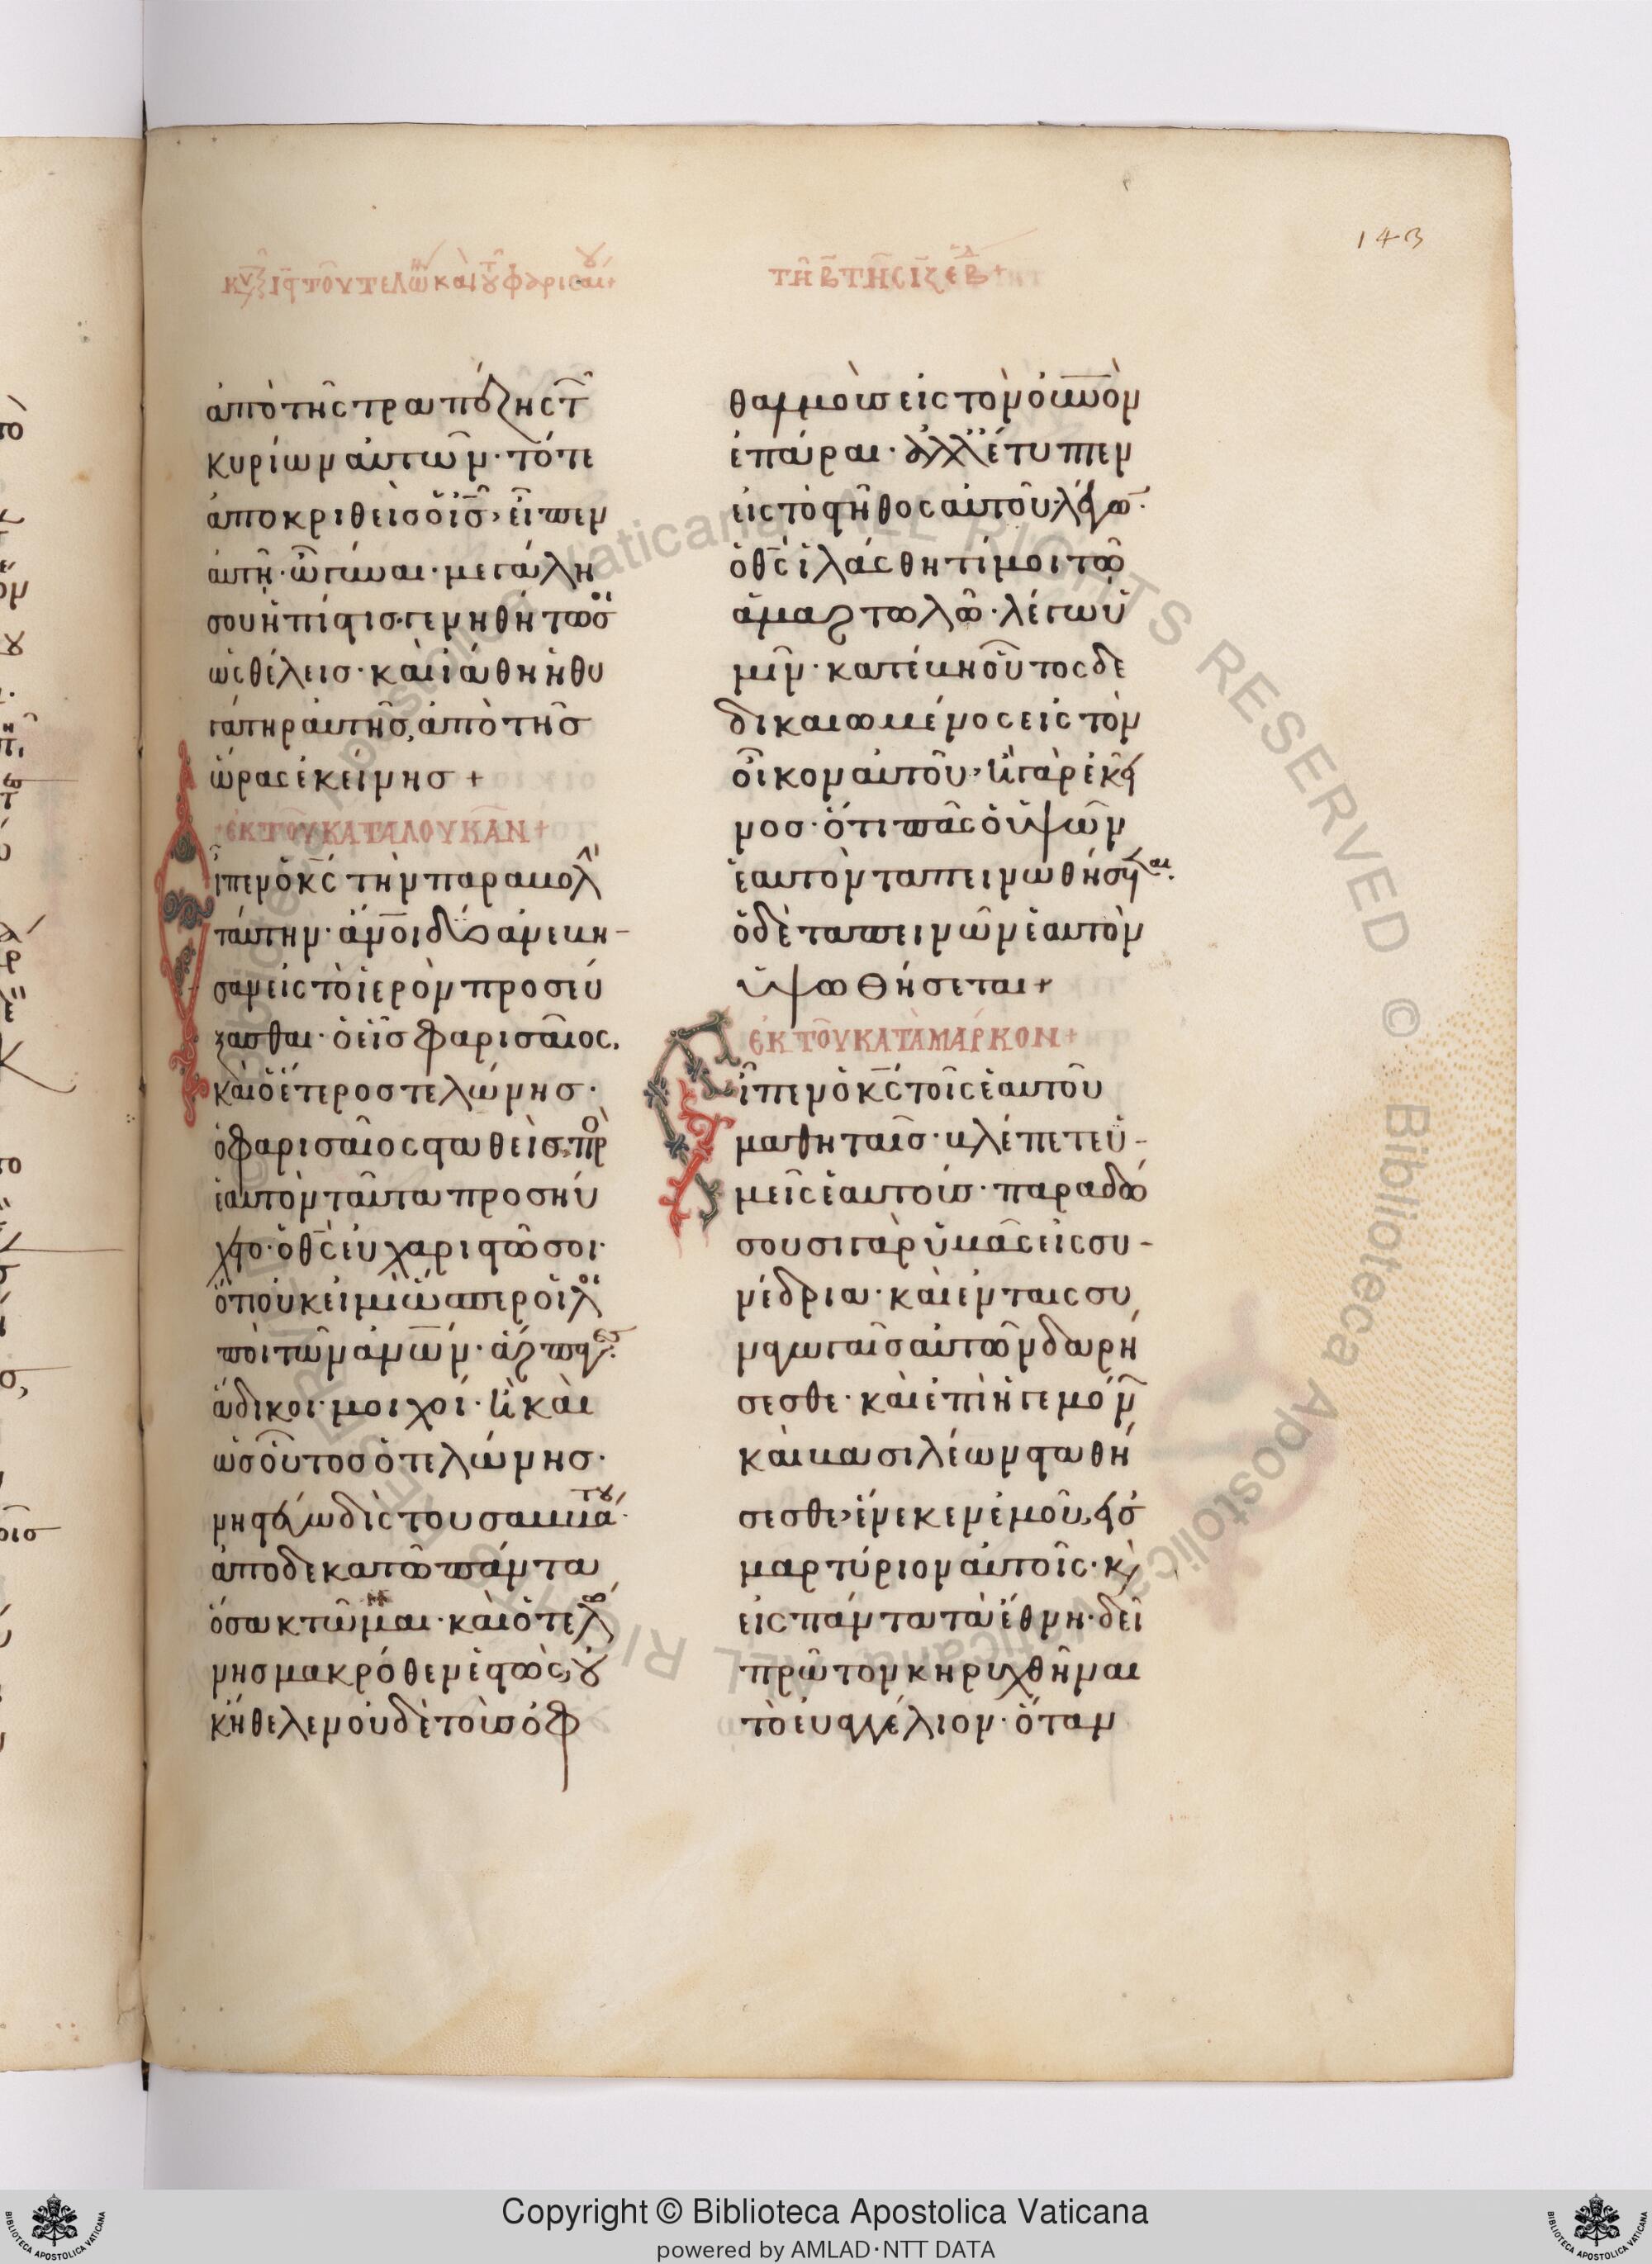 143
κυ ιϛ τοῦ τελων και του φαρισαιου +
ἀπὸ τῆς τραπέζης τ
κυρίων αὐτῶν· τότε
ἀποκριθεὶς ὁ ις, εἶπεν
αὐτῆ· ὦ γύναι· μεγάλη
σου ἡ πίστις· γενηθήτω σοι
ὡς θέλεις· καὶ ἰάθη ἡ θυ
γάτηρ αὐτῆς, ἀπὸ τῆς
ὥρας ἐκείνης +
ἐκ τοῦ κατὰ λουκᾶν +
εἶπεν ὁ κς τὴν παραβολ
ταύτην· ἄνοι δύο ἀνέβη-
σαν εἰς τὸ ἱερὸν προσεύ
ξασθαι· ὁ εἷς φαρισαῖος,
καὶ ὁ ἕτερος τελώνης·
ὁ φαρισαῖος σταθεὶς, πρ
ἑαυτὸν ταῦτα προσηύ
χετο· ὁ θς εὐχαριστῶ σοι·
ὅτι οὐκ εἰμὶ ὥσπερ οἱ λοι
ποὶ τῶν ἀνων· ἅρπαγες·
ἄδικοι· μοιχοί· ἢ καὶ
ὡς οὗτος ὁ τελώνης·
νηστεύω δὶς τοῦ σαββάτου·
ἀποδεκατῶ πάντα
ὅσα κτῶμαι· καὶ ὁ τελώ
νης μακρόθεν ἑστὼς, οὐ
κ ἤθελεν οὐδὲ τοὺς ὀφ
τῆ β τῆς ιζ εβδ +
θαλμοὺς εἰς τὸν οὐνὸν
ἐπάραι· ἀλλ' ἔτυπτεν
εἰς τὸ στῆθος αὐτοῦ λέγων·
ὁ θς ἱλάσθητί μοι τῶ
ἁμαρτωλῶ· λέγω ὑ
μῖν· κατέβη οὗτος δε
δικαιωμένος εἰς τὸν
οἶκον αὐτοῦ, ἢ γὰρ ἐκεῖ
νος· ὅτι πᾶς ὁ ὑψῶν
ἑαυτὸν ταπεινωθήσεται·
ὁ δὲ ταπεινῶν ἑαυτὸν
ὑψωθήσεται +
ἐκ τοῦ κατὰ μάρκον +
εἶπεν ὁ κς τοῖς ἑαυτοῦ
μαθηταῖς· βλέπετε ὑ-
μεῖς ἑαυτούς· παραδώ
σουσι γὰρ ὑμᾶς εἰς συ-
νέδρια· καὶ ἐν ταῖς συ
ναγωγαῖς αὐτῶν δαρή
σεσθε· καὶ ἐπὶ ἡγεμόν
καὶ βασιλέων σταθή
σεσθε, ἕνεκεν ἐμοῦ, εἰς
μαρτύριον αὐτοῖς· κὶ
εἰς πάντα τὰ ἔθνη· δεῖ
πρῶτον κηρυχθῆναι
τὸ εὐαγγέλιον· ὅταν
Copyright © Biblioteca Apostolica Vaticana
powered by AMLAD·NTT DATA